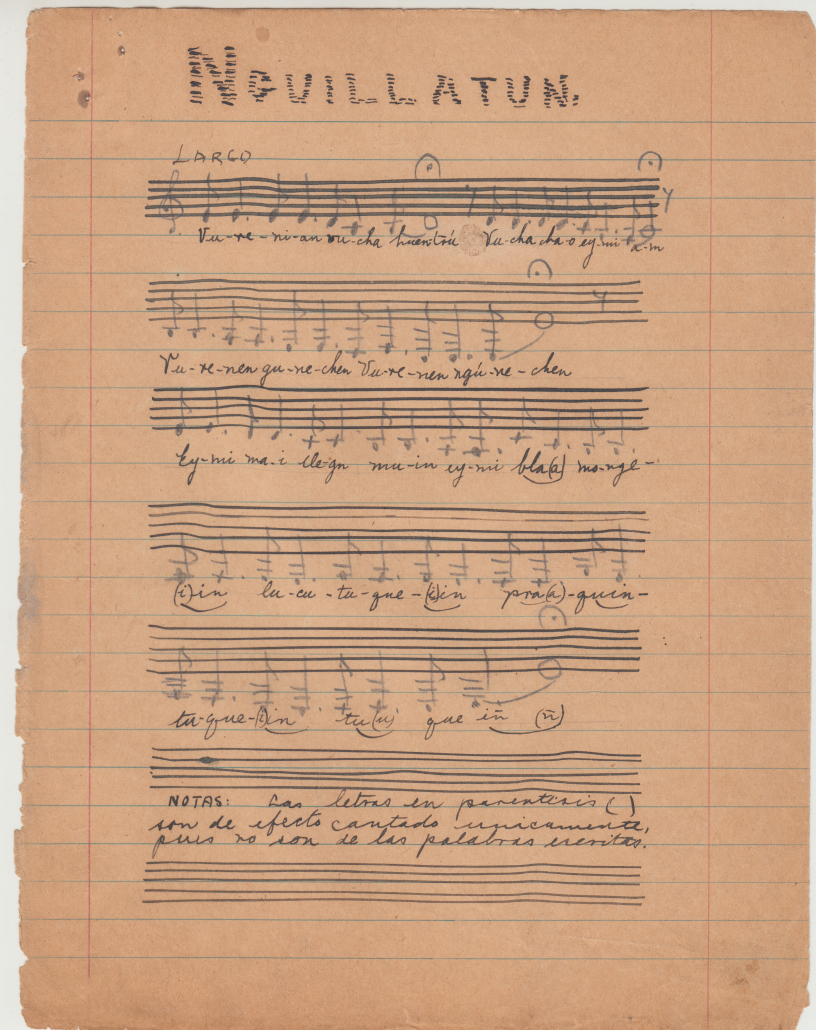 NGUILLATUN.
LARGO
Vu-re-ni-an vu-cha huentrú Vu-cha cha-o ey-mi a-m
Vu-re-nen gu-ne-chen Vu-re-nen ngú-ne-chen
Ey-mi ma-i lle-gn mu-in ey-mi bla(a) mo-nge-
(i)in lu-cu-tu-que-(i)in pra(a)-quin-
tu-que-(i)in tu(u) que iñ (ñ)
NOTAS: Las letras en parentisis ( )
son de efecto cantado unicamente,
pues no son de las palabras escritas.